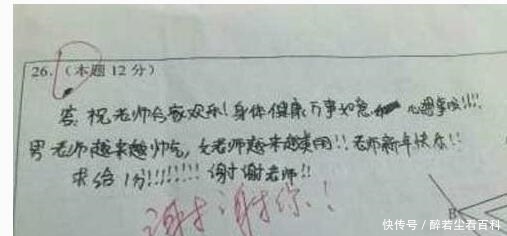 26.(本题12分)
答:祝老师合家欢乐!身体健康万事如意 心想事成!!!!
男老师越来越帅气,女老师越来越美丽!!老师新年快乐!!
求给1分!!!!!!!!谢谢老师!!
谢谢你!
B
快传号/醉若尘看百科